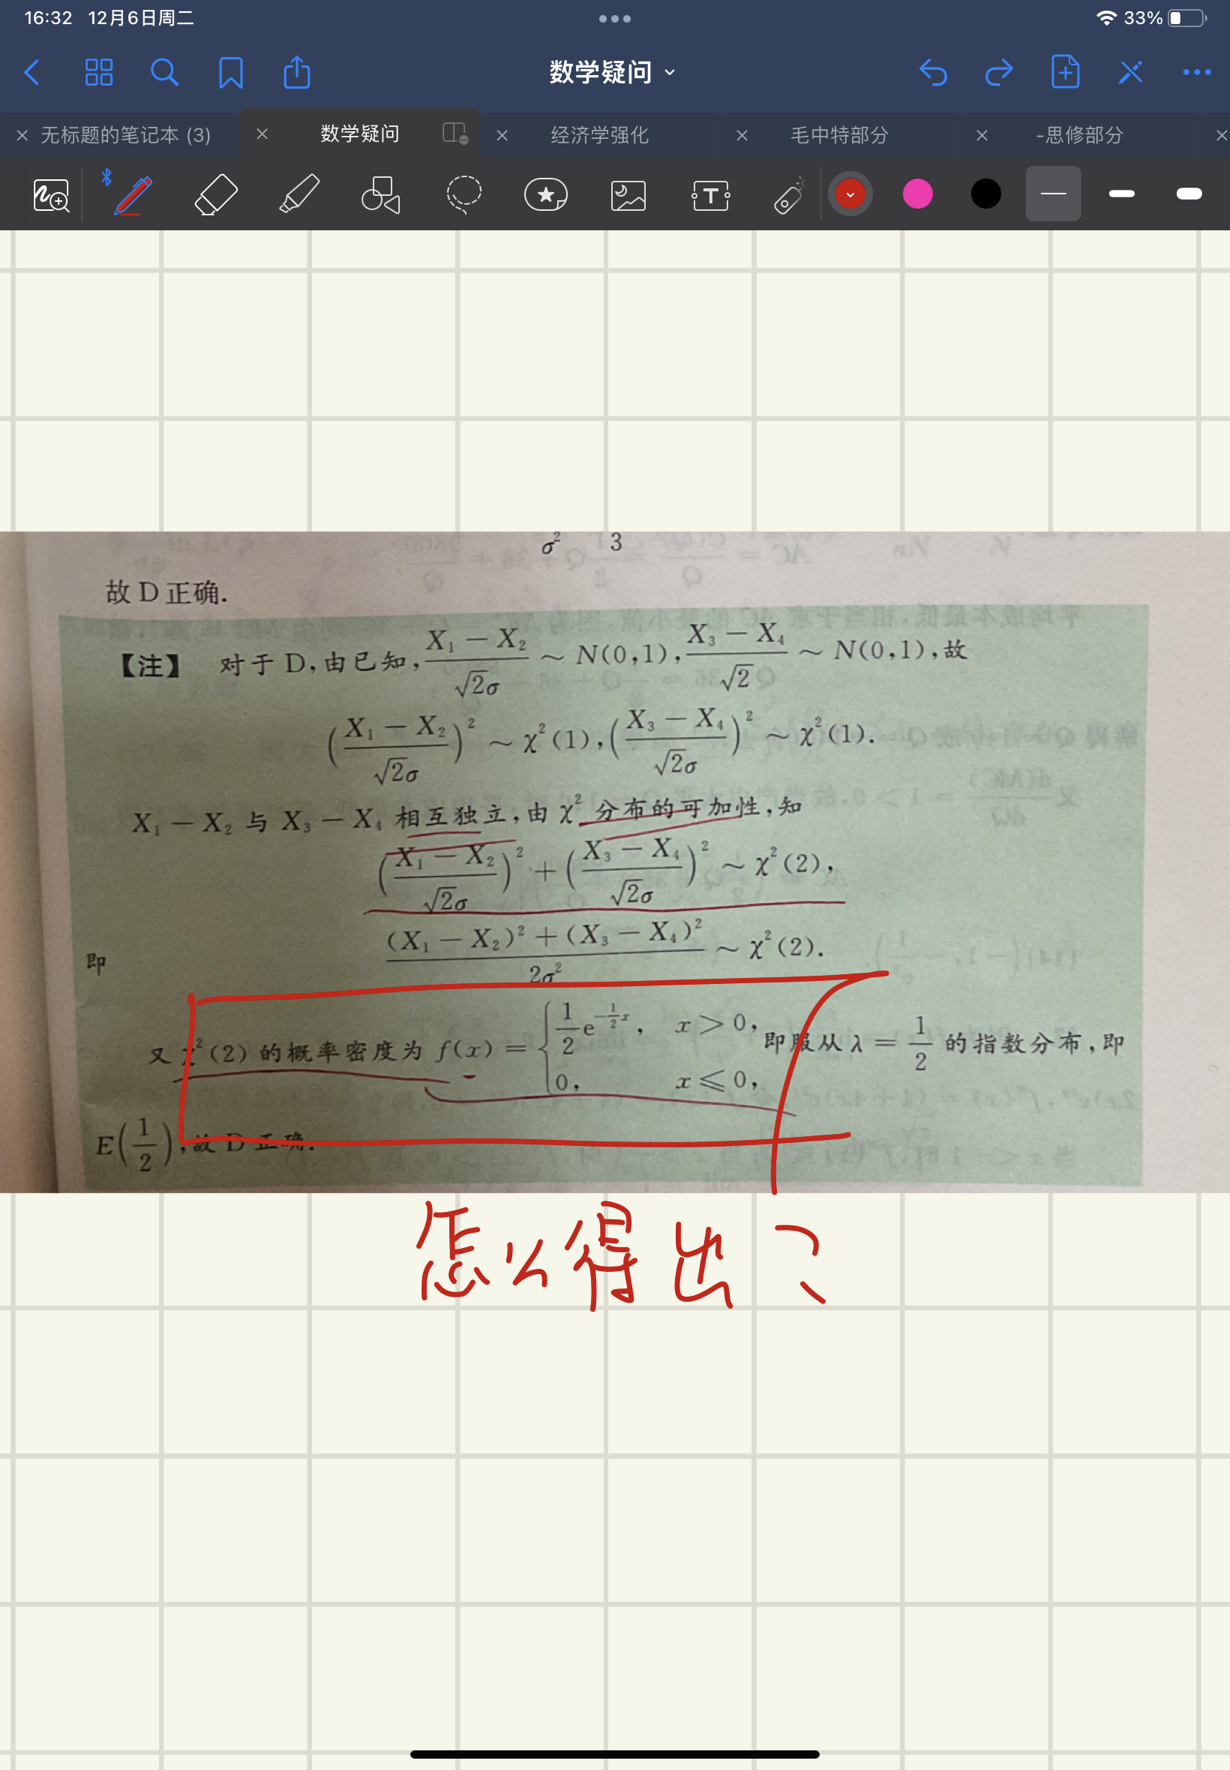 16:32 12月6日周二
33%
数学疑问
无标题的笔记本 (3)
数学疑问
经济学强化
毛中特部分
-思修部分
σ² 3
故 D 正确.
【注】 对于 D,由已知, (X₁ − X₂)/(√2σ) ~ N(0,1), (X₃ − X₄)/√2 ~ N(0,1),故
((X₁ − X₂)/(√2σ))² ~ χ²(1), ((X₃ − X₄)/(√2σ))² ~ χ²(1).
X₁ − X₂ 与 X₃ − X₄ 相互独立,由 χ² 分布的可加性,知
((X₁ − X₂)/(√2σ))² + ((X₃ − X₄)/(√2σ))² ~ χ²(2),
即 ((X₁ − X₂)² + (X₃ − X₄)²)/(2σ²) ~ χ²(2).
又 χ²(2) 的概率密度为 f(x) = { 1/2 e^(−1/2 x), x > 0, 0, x ⩽ 0, 即服从 λ = 1/2 的指数分布,即
E(1/2),故 D 正确.
怎么得出?